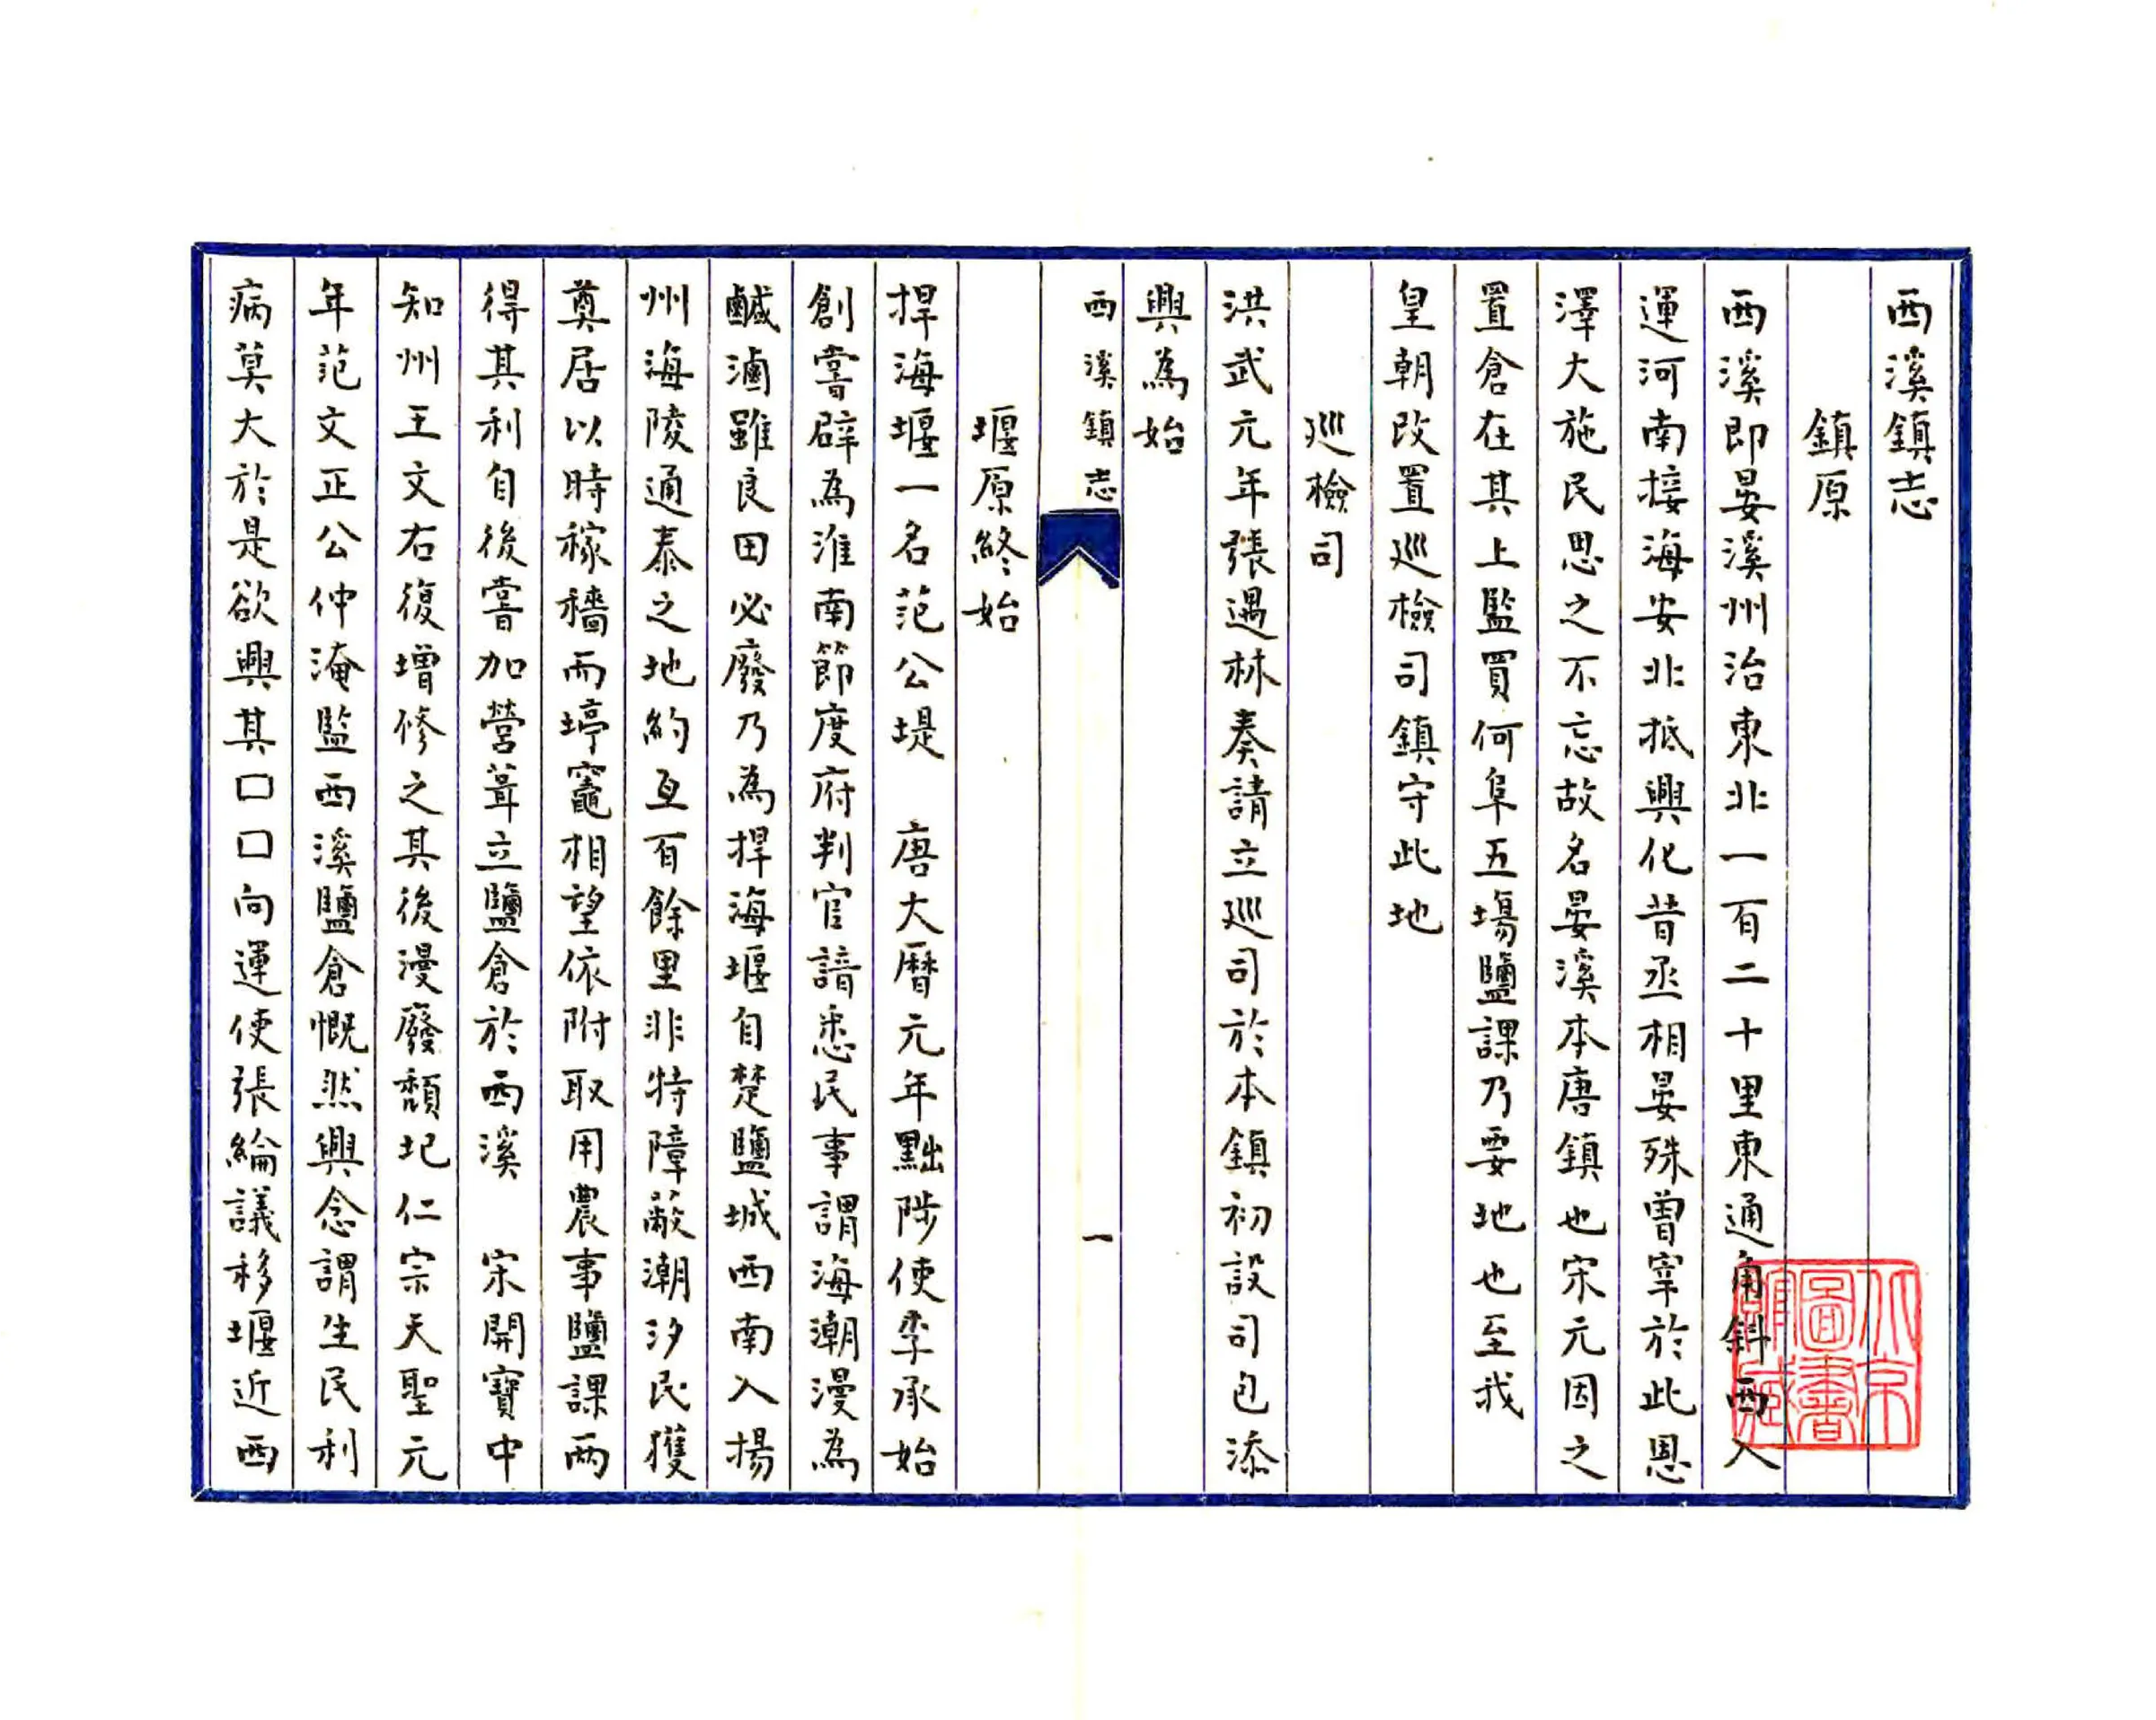 西溪鎮志
鎮原
西溪即晏溪州治東北一百二十里東通角斜西入
運河南接海安北抵興化昔丞相晏殊曽宰於此恩
澤大施民思之不忘故名晏溪本唐鎮也宋元因之
置倉在其上監買何阜五塲鹽課乃要地也至我
皇朝改置巡檢司鎮守此地
巡檢司
洪武元年張遇林奏請立巡司於本鎮初設司包添
興為始
西溪鎮志
一
堰原終始
捍海堰一名范公堤　唐大曆元年黜陟使李承始
創嘗辟為淮南節度府判官諳悉民事謂海潮漫為
鹹滷雖良田必廢乃為捍海堰自楚鹽城西南入揚
州海陵通泰之地約亙百餘里非特障蔽潮汐民獲
奠居以時稼穡而埻竈相望依附取用農事鹽課兩
得其利自後嘗加營葺立鹽倉於西溪　宋開寶中
知州王文右復增修之其後漫廢頹圮仁宗天聖元
年范文正公仲淹監西溪鹽倉慨然興念謂生民利
病莫大於是欲興其囗囗向運使張綸議移堰近西
北京圖書館藏